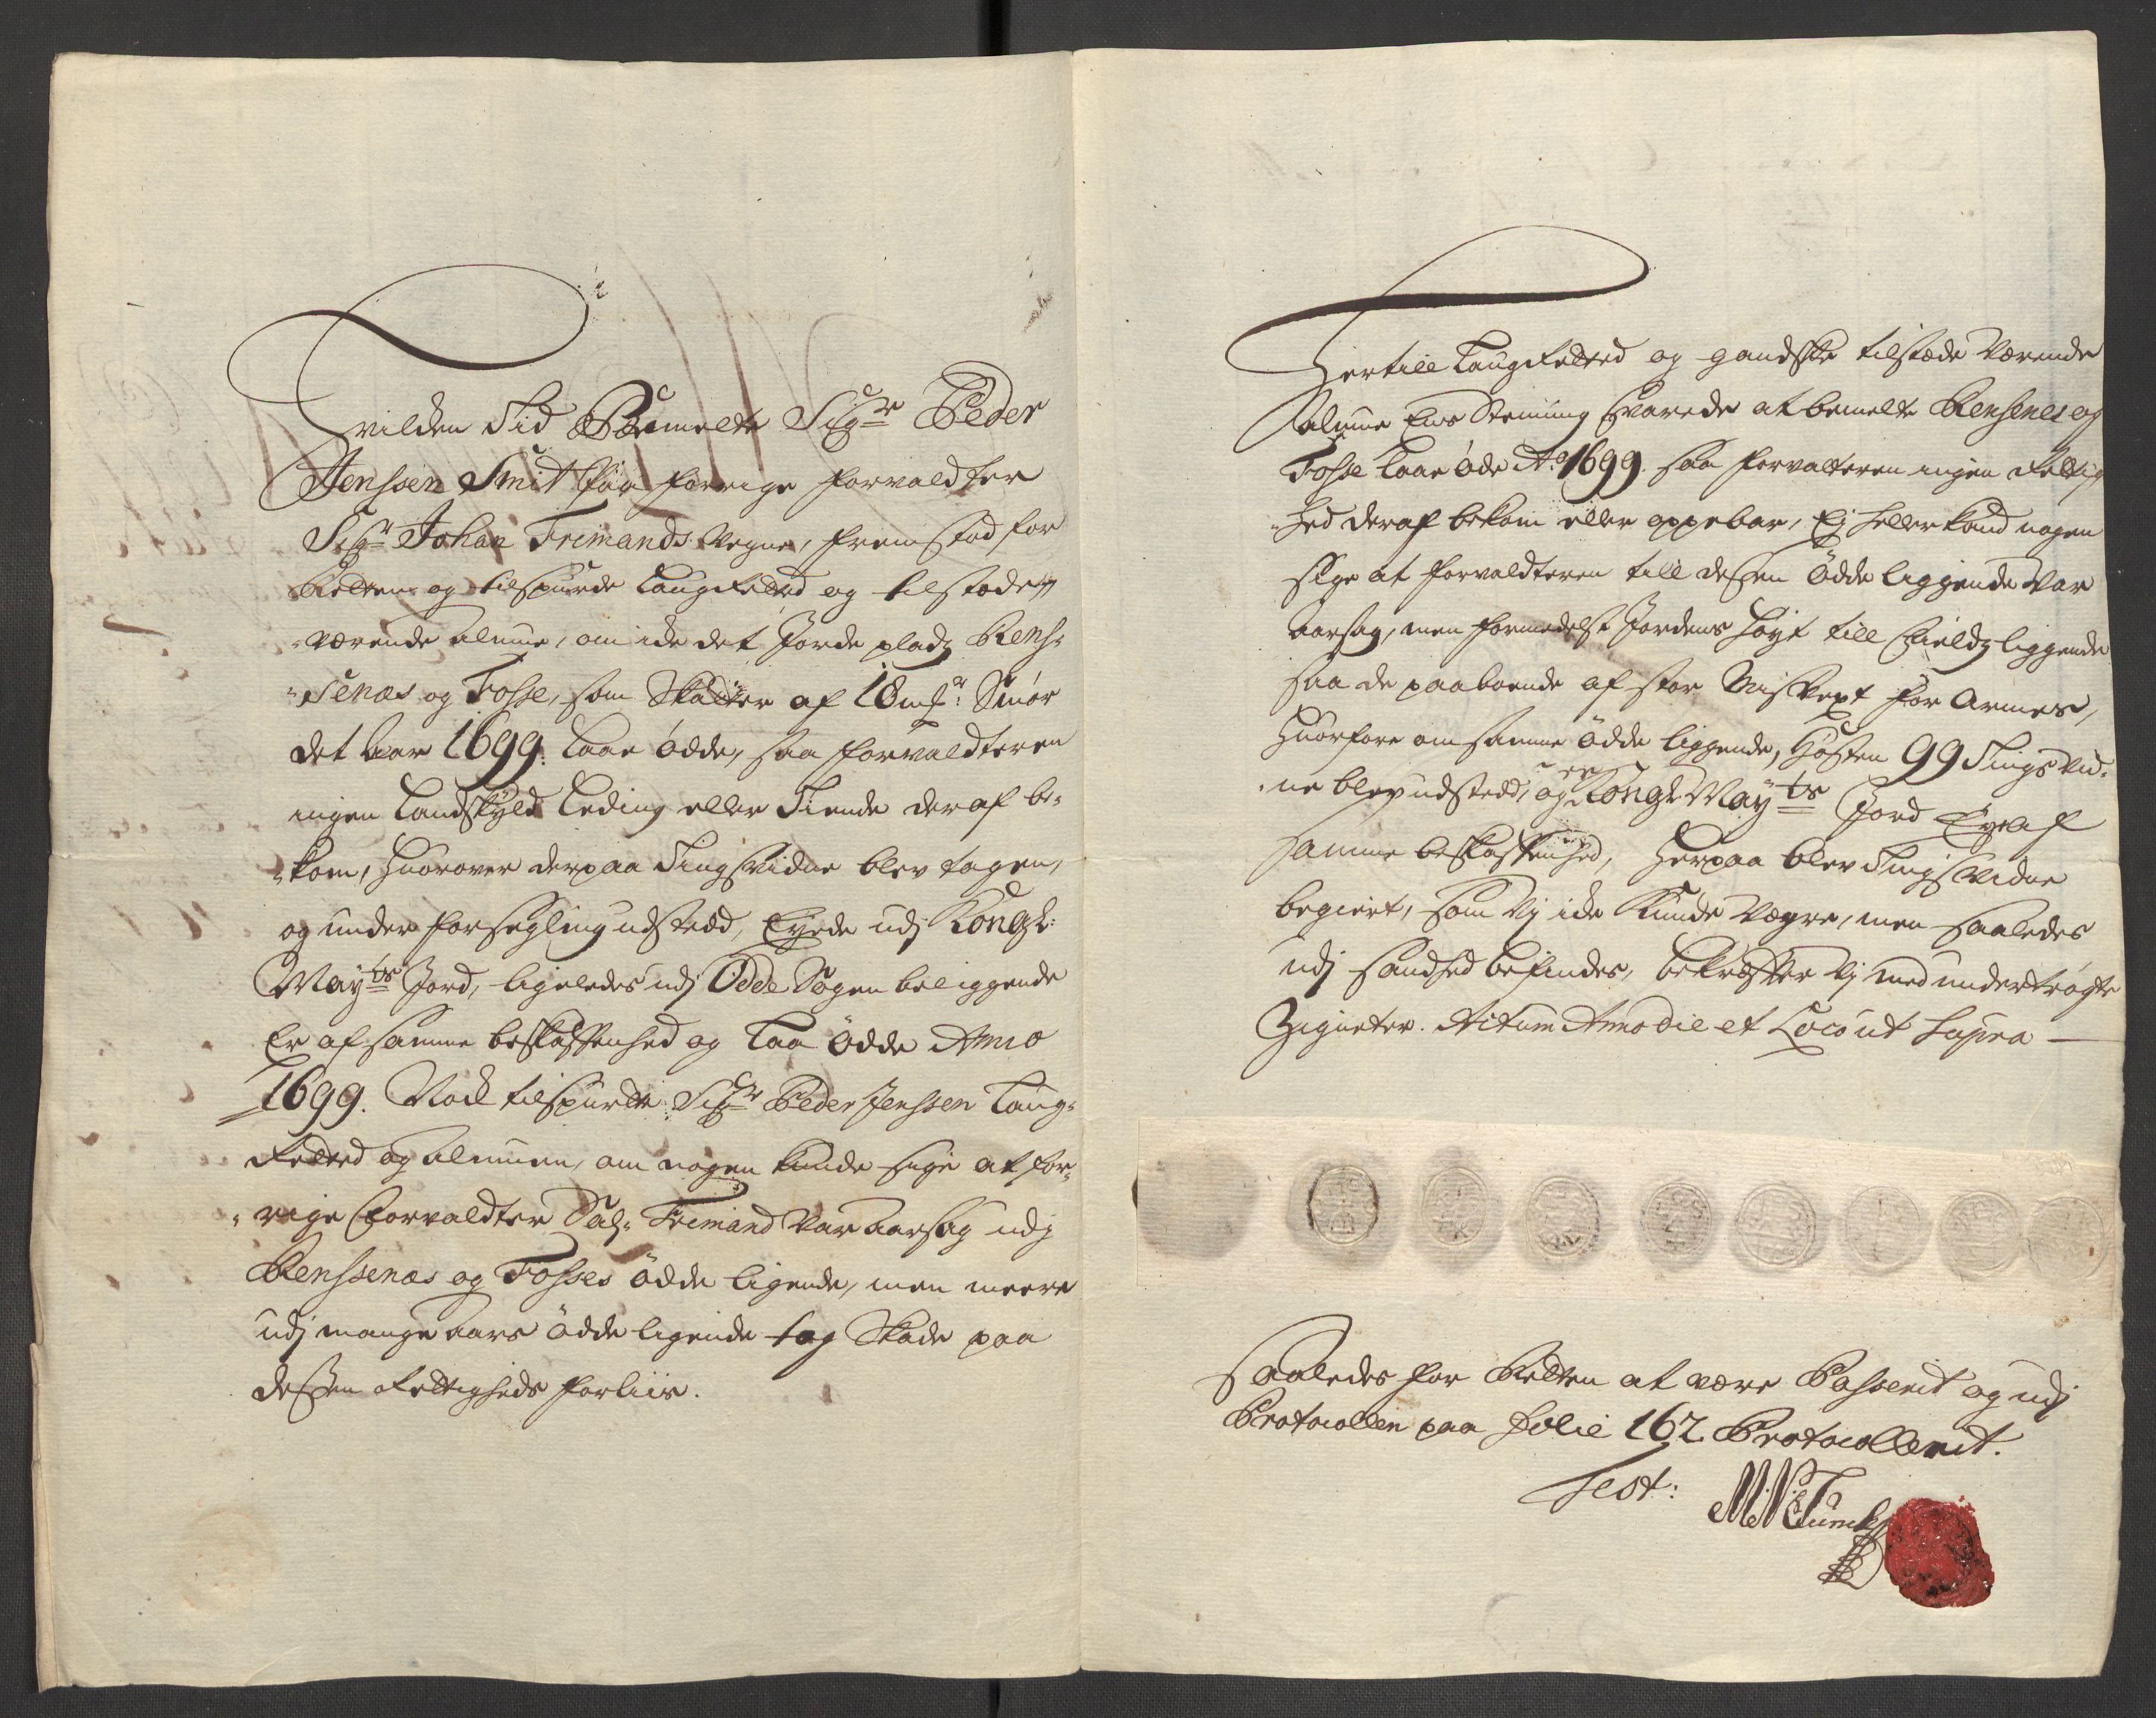 Hvilken Tid Bemelte Sigr Peder
Jenssen Smit paa forrige forvaldter
Sigr Johan Frimands Vegne, fremstod for
Retten og tilspurde Laugrettid og tilstæde
-værende almue, om icke det Jorde pladz Rens-
-senæs og Fosse, som Skatter af 18 mkr Smör
det aar 1699. Laae ödde, saa forvaldteren
ingen Landskyld Leding eller Tiende deraf be-
-kom, huorover derpaa Tingsvidne blev tagen,
og under forsegling udstedd, Eyede udj Kongl:
Mayts Jord, ligeledes udj Odde Sogen beliggende
Er af samme beskaffenhed og Laa ödde Anno
1699. Nock tilspurde Sigr Peder Jenssen Laug-
Retted og almuen, om nogen kunde sige at for-
-rige forvaldter Sal: Frimand var aarsag udj
Renssenæs og Fosses ödde ligende, men meere
udj mange aars ödde ligende tog Skade paa
dessen rettigheds forliis.
Hertill Laugrettid og gandske tilstæde Værende
almue Eens Stemning Svarede at bemelte Rensenes og
Fosse Laae öde Ao 1699. saa forvalteren ingen Rettig
-hed deraf bekom eller oppebar, Ej heller kand nogen
sige at forvaldteren till dessen ödde liggende var
aarsag, men formedelst Jordens höyt till Fieldz liggende
saa de paaboende af stor Misvext for armes,
huorfore om samme ödde liggende, hösten 99 Tingsvid-
-ne blev udstedd, og er Kongl Mayts Jord Eye af
samme beskaffenhed, herpaa blev Tingsvidne
begiert, som vj icke kunde Vægre, men saaledes
udj sandhed befindes, bekræffter vj med undertrögte
Zigneter. Actum Anno die et Loco ut supra
Saaledes for Retten at være Passerit og udj
Protocollen paa Folie 162. Protocollerit.
Test: